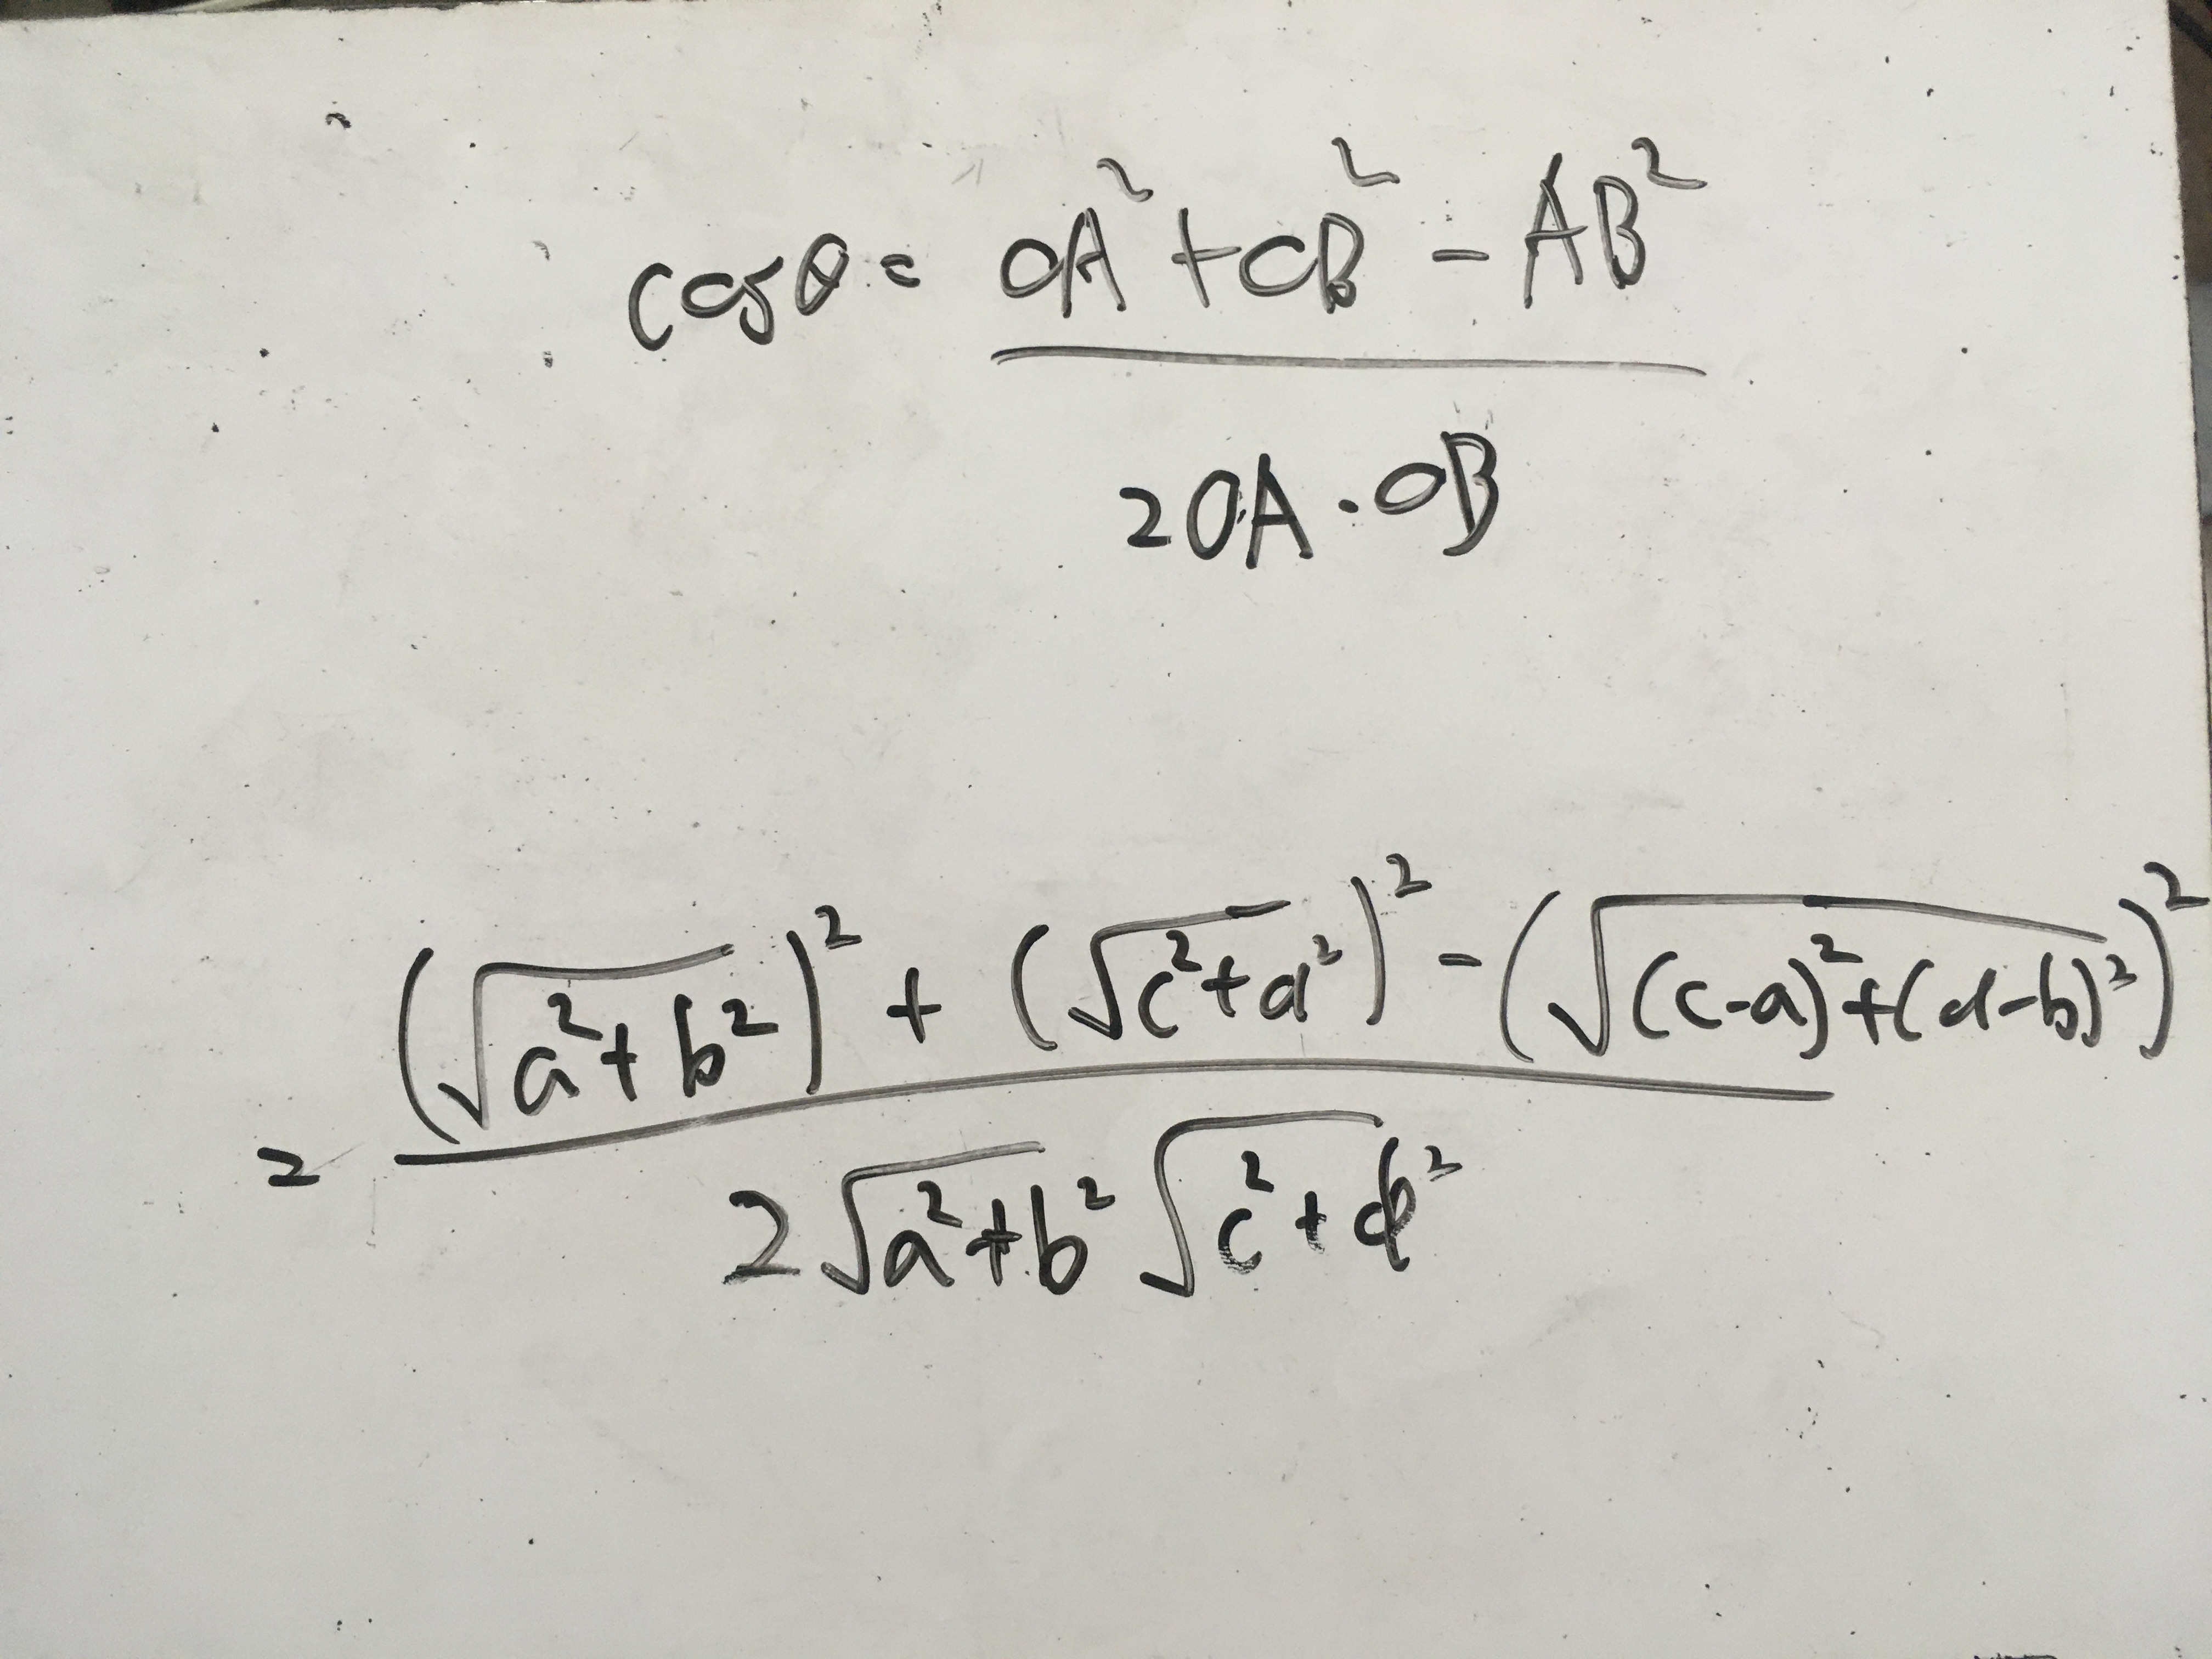 cosθ = OA² + OB² - AB²
2OA·OB
(√a²+b²)² + (√c²+d²)² - (√(c-a)²+(d-b)²)²
=
2√a²+b² √c²+d²